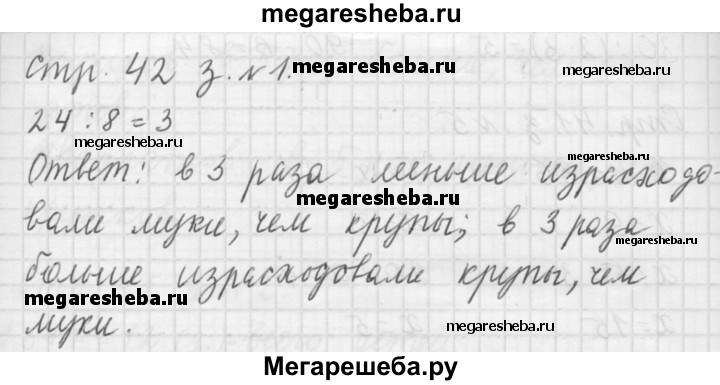 megaresheba.ru
стр. 42 з. №1.
megaresheba.ru
megaresheba.ru
24 : 8 = 3
megaresheba.ru
megaresheba.ru
Ответ: в 3 раза меньше израсходо-
megaresheba.ru
вали муки, чем крупы; в 3 раза
megaresheba.ru
больше израсходовали крупы, чем
megaresheba.ru
муки.
megaresheba.ru
Мегарешеба.ру